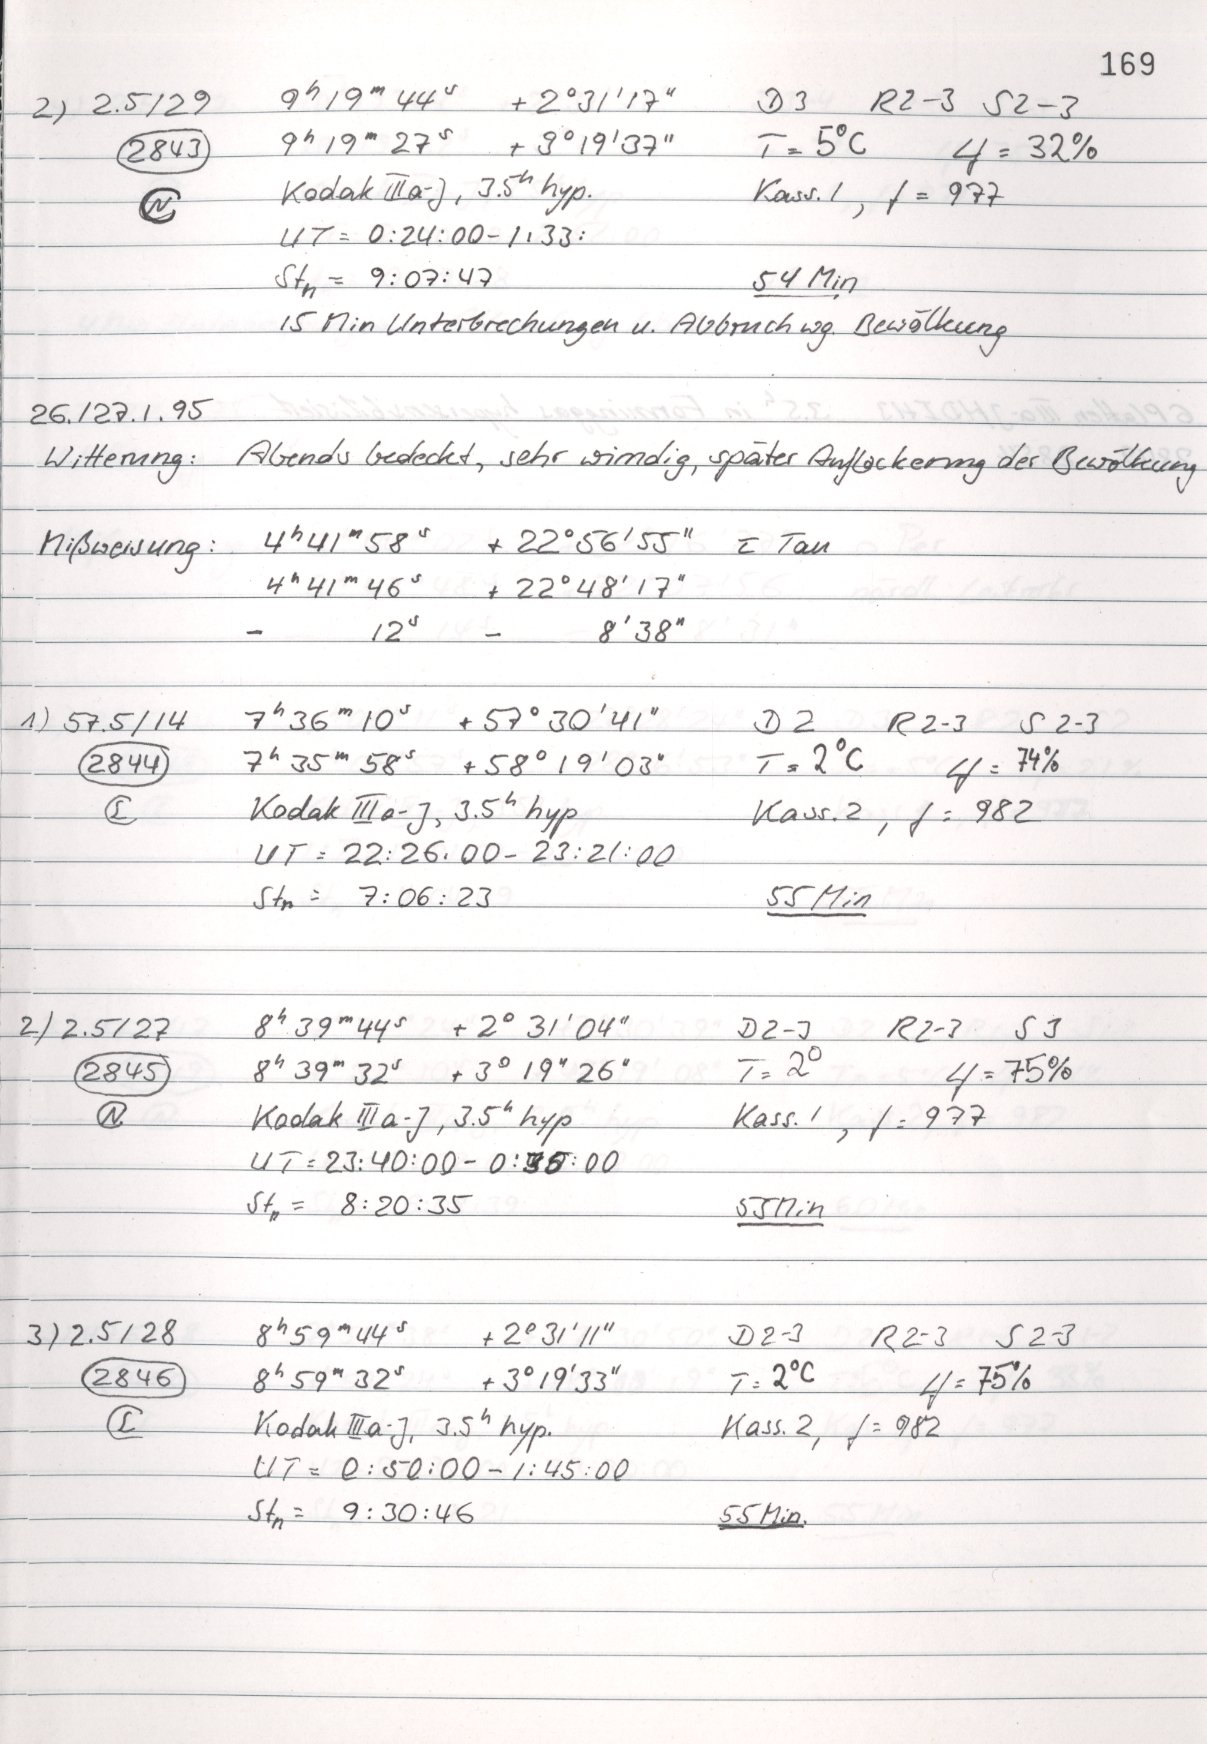 169
2) 2.5/29 9ʰ19ᵐ44ˢ +2°31'17" D3 R2-3 S2-3
2843 9ʰ19ᵐ27ˢ +3°19'37" T= 5°C φ = 32%
N Kodak IIIa-J, 3.5ʰ hyp. Kass. 1, f = 977
UT = 0:24:00-1:33:
Stₙ = 9:07:47 54 Min
15 Min Unterbrechungen u. Abbruch wg. Bewölkung
26./27.1.95
Witterung: Abends bedeckt, sehr windig, später Auflockerung der Bewölkung
Mißweisung: 4ʰ41ᵐ58ˢ +22°56'55" τ Tau
4ʰ41ᵐ46ˢ +22°48'17"
- 12ˢ - 8'38"
1) 57.5/14 7ʰ36ᵐ10ˢ +57°30'41" D2 R2-3 S2-3
2844 7ʰ35ᵐ58ˢ +58°19'03" T= 2°C φ = 74%
L Kodak IIIa-J, 3.5ʰ hyp Kass. 2, f = 982
UT = 22:26:00-23:21:00
Stₙ = 7:06:23 55 Min
2) 2.5/27 8ʰ39ᵐ44ˢ +2°31'04" D2-3 R2-3 S3
2845 8ʰ39ᵐ32ˢ +3°19"26" T= 2° φ = 75%
N Kodak IIIa-J, 3.5ʰ hyp Kass. 1, f = 977
UT = 23:40:00-0:35:00
Stₙ = 8:20:35 55 Min
3) 2.5/28 8ʰ59ᵐ44ˢ +2°31'11" D2-3 R2-3 S2-3
2846 8ʰ59ᵐ32ˢ +3°19'33" T= 2°C φ = 75%
L Kodak IIIa-J, 3.5ʰ hyp. Kass. 2, f = 982
UT = 0:50:00-1:45:00
Stₙ = 9:30:46 55 Min.